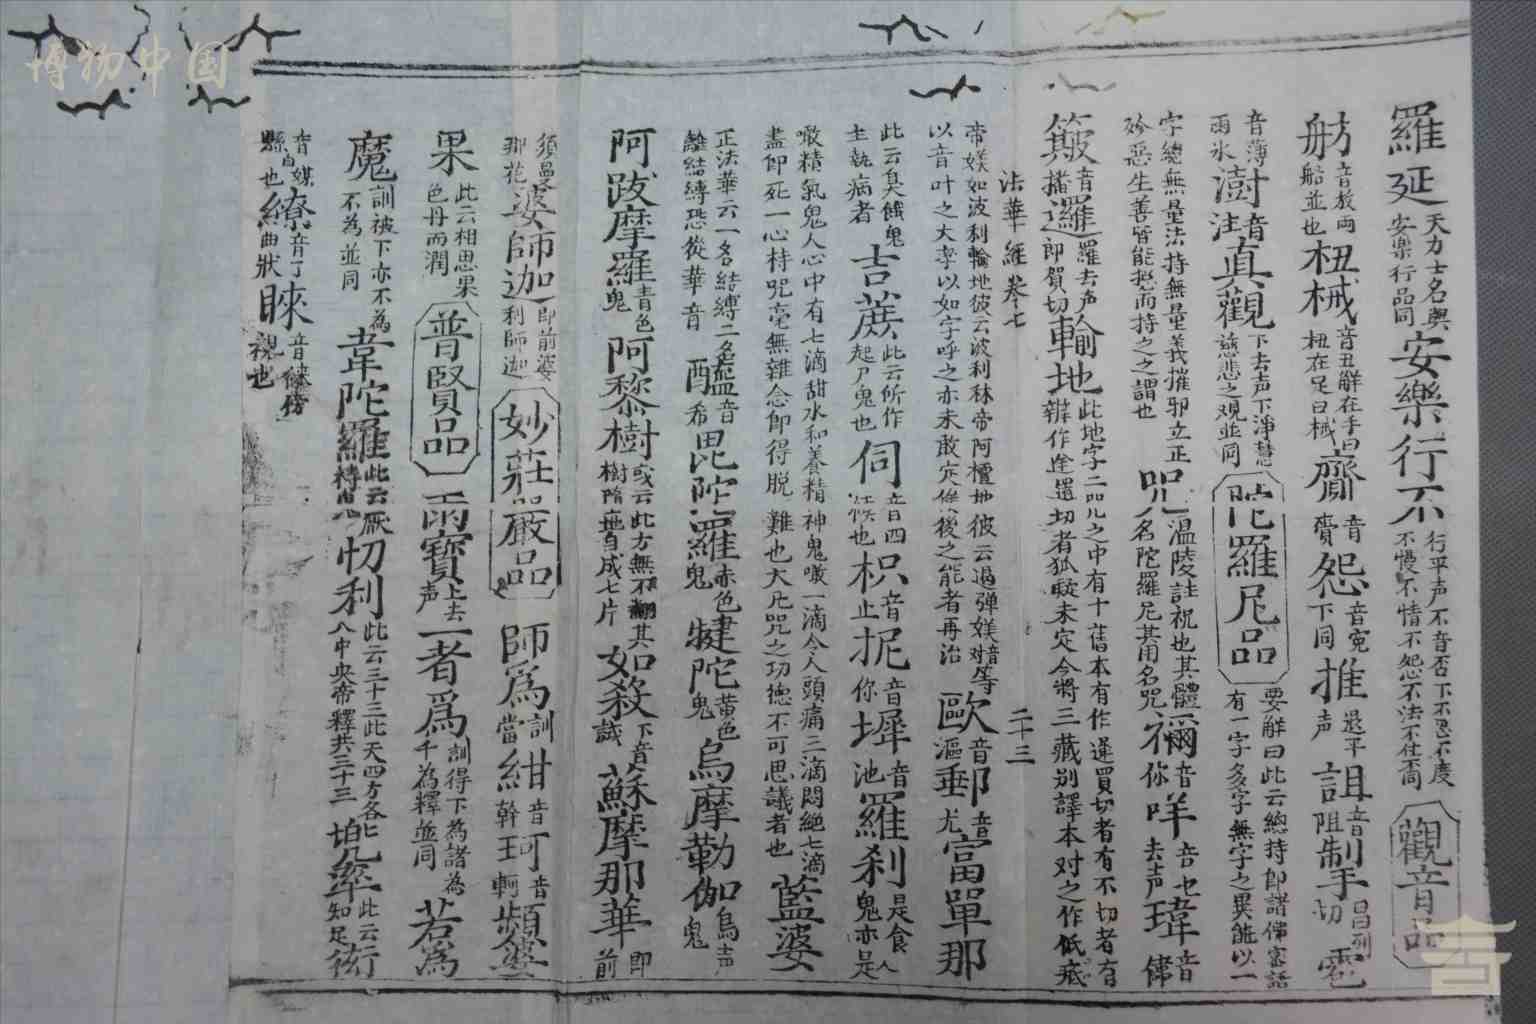 博物中国
羅延天力士名與安樂行品同安樂行不行平声不音否下不怨不度不慢不情不怨不法不仕不高觀音品
舫音放兩船並也杻械音丑解在手曰杻在足曰械齎音賫怨音寃下同推退平声詛音阻制昌列切雹
音薄雨氷澍音注真觀下去声下淨慧慈悲之观並同陀羅尼品要解曰此云總持即諸佛密語有一字多字無字之異能以一
字總無量法持無量義摧邪立正殄惡生善皆能揔而持之之謂也咒温陵註祝也其體名陀羅尼其用名咒禰音你咩音也去声瑋音偉
簸音播邏羅去声即賀切輸地此地字二咒之中有十舊本有作逢買切者有不切者有辨作途還切者狐疑未定今將三藏别譯本对之作低底
法華經卷七 二十三
帝媄如波利輸地彼云波利秫帝阿檀地彼云過弹媄对音等以音叶之大李以如字呼之亦未敢定俟後之能者再治歐音漚郵音尤富單那
此云臭餓鬼主執病者吉蔗此云所作起尸鬼也伺音四候也枳音止抳音你墀音池羅刹是食人鬼亦是
噉精氣鬼人心中有七滴甜水和養精神鬼噉一滴令人頭痛三滴悶絕七滴盡卽死一心持咒毫無雜念即得脫難也大凡咒之功德不可思議者也藍婆
正法華云一名結縛二名離結縛恐從華音醯音希毘陀羅赤色鬼犍陀黃色鬼烏摩勒伽烏声鬼
阿跋摩羅青色鬼阿黎樹或云此方無不翻其樹隨墮自成七片如殺下音試蘇摩那華即前
須曼那花婆師迦即前婆利師迦妙莊嚴品師爲訓當紺音幹珂音軻頻婆
果此云相思果色丹而潤普賢品雨寶上去声者爲訓得下為諸為千為釋並同若爲
魔訓被下亦不為不為並同韋陀羅此云厭禱鬼忉利此云三十三此天四方各八中央帝釋共三十三兜率此云知足衒
音媒自縣也繚音了曲狀睞音徠傍視也